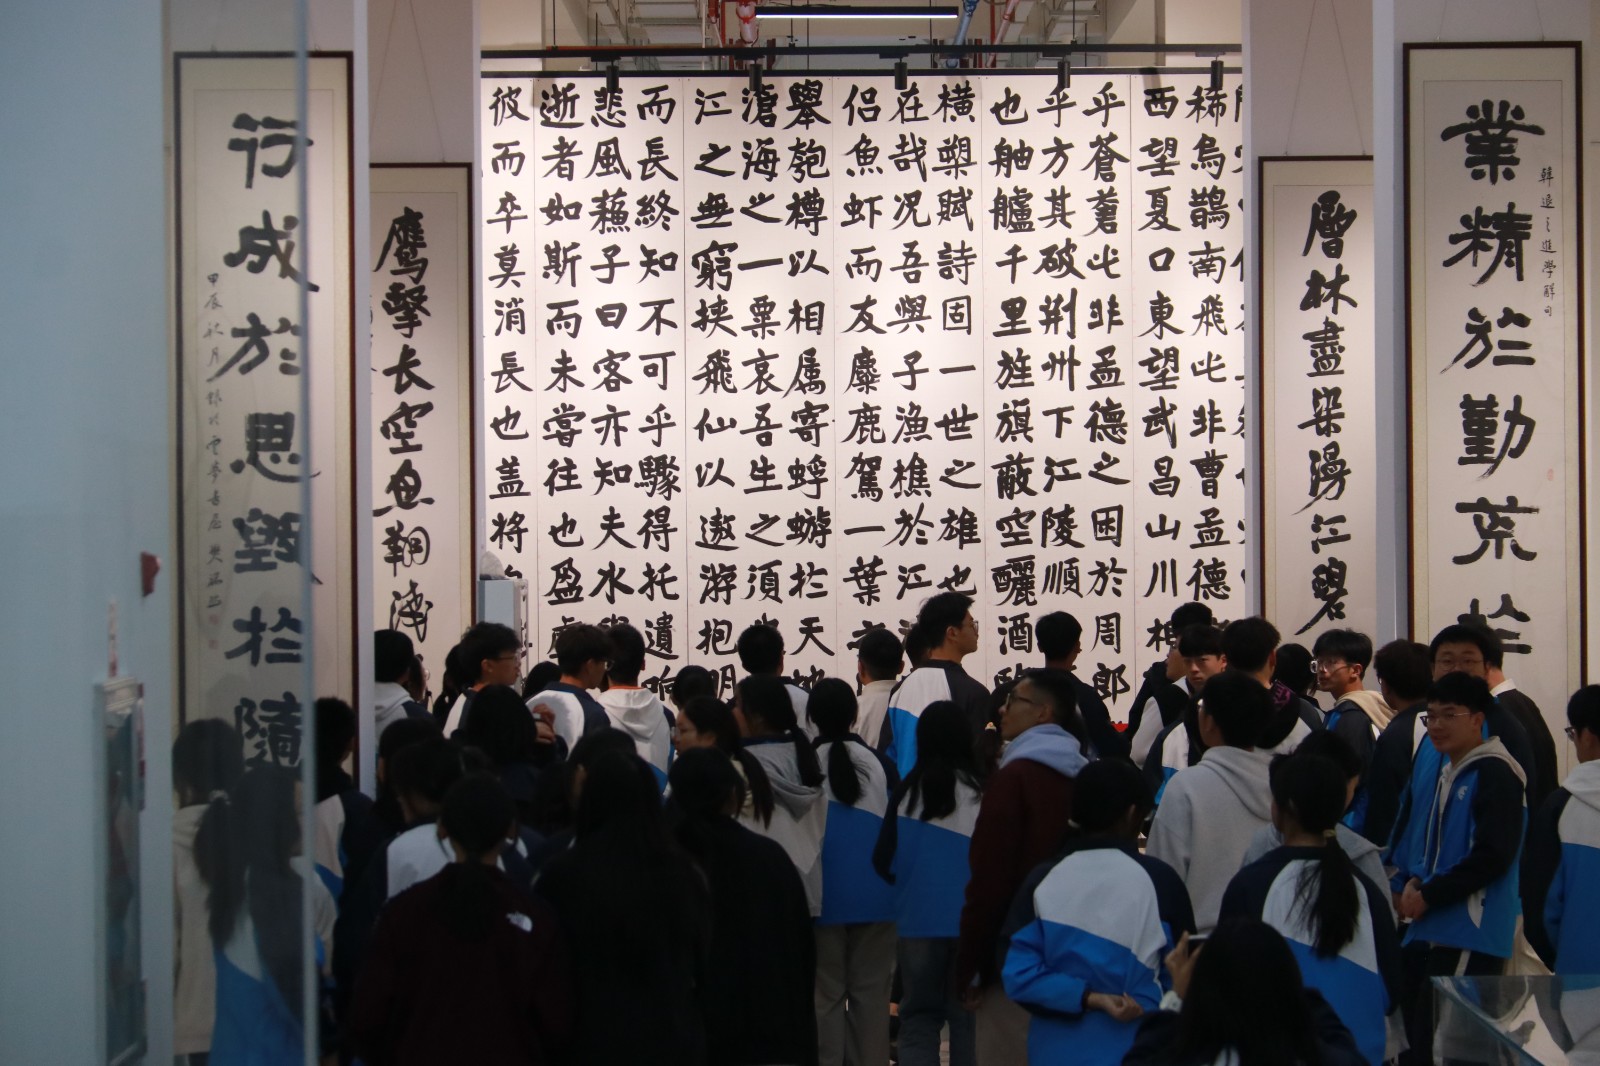 業精於勤荒於
韓退之進學解句
層林盡染漫江碧
稀烏鵲南飛此非曹孟德
西望夏口東望武昌山川相
乎蒼蒼此非孟德之困於周郎
乎方其破荆州下江陵順
也舳艫千里旌旗蔽空釃酒臨
横槊賦詩固一世之雄也
在哉况吾與子漁樵於江
侣魚虾而友麋鹿駕一葉之
舉匏樽以相属寄蜉蝣於天地
滄海之一粟哀吾生之須
江之無窮挟飛仙以遨游抱明
而長終知不可乎驟得托遺响
悲風蘇子曰客亦知夫水
逝者如斯而未嘗往也盈虚
彼而卒莫消長也盖将
鹰擊长空鱼翔浅
行成於思毁於隨
甲辰秋月